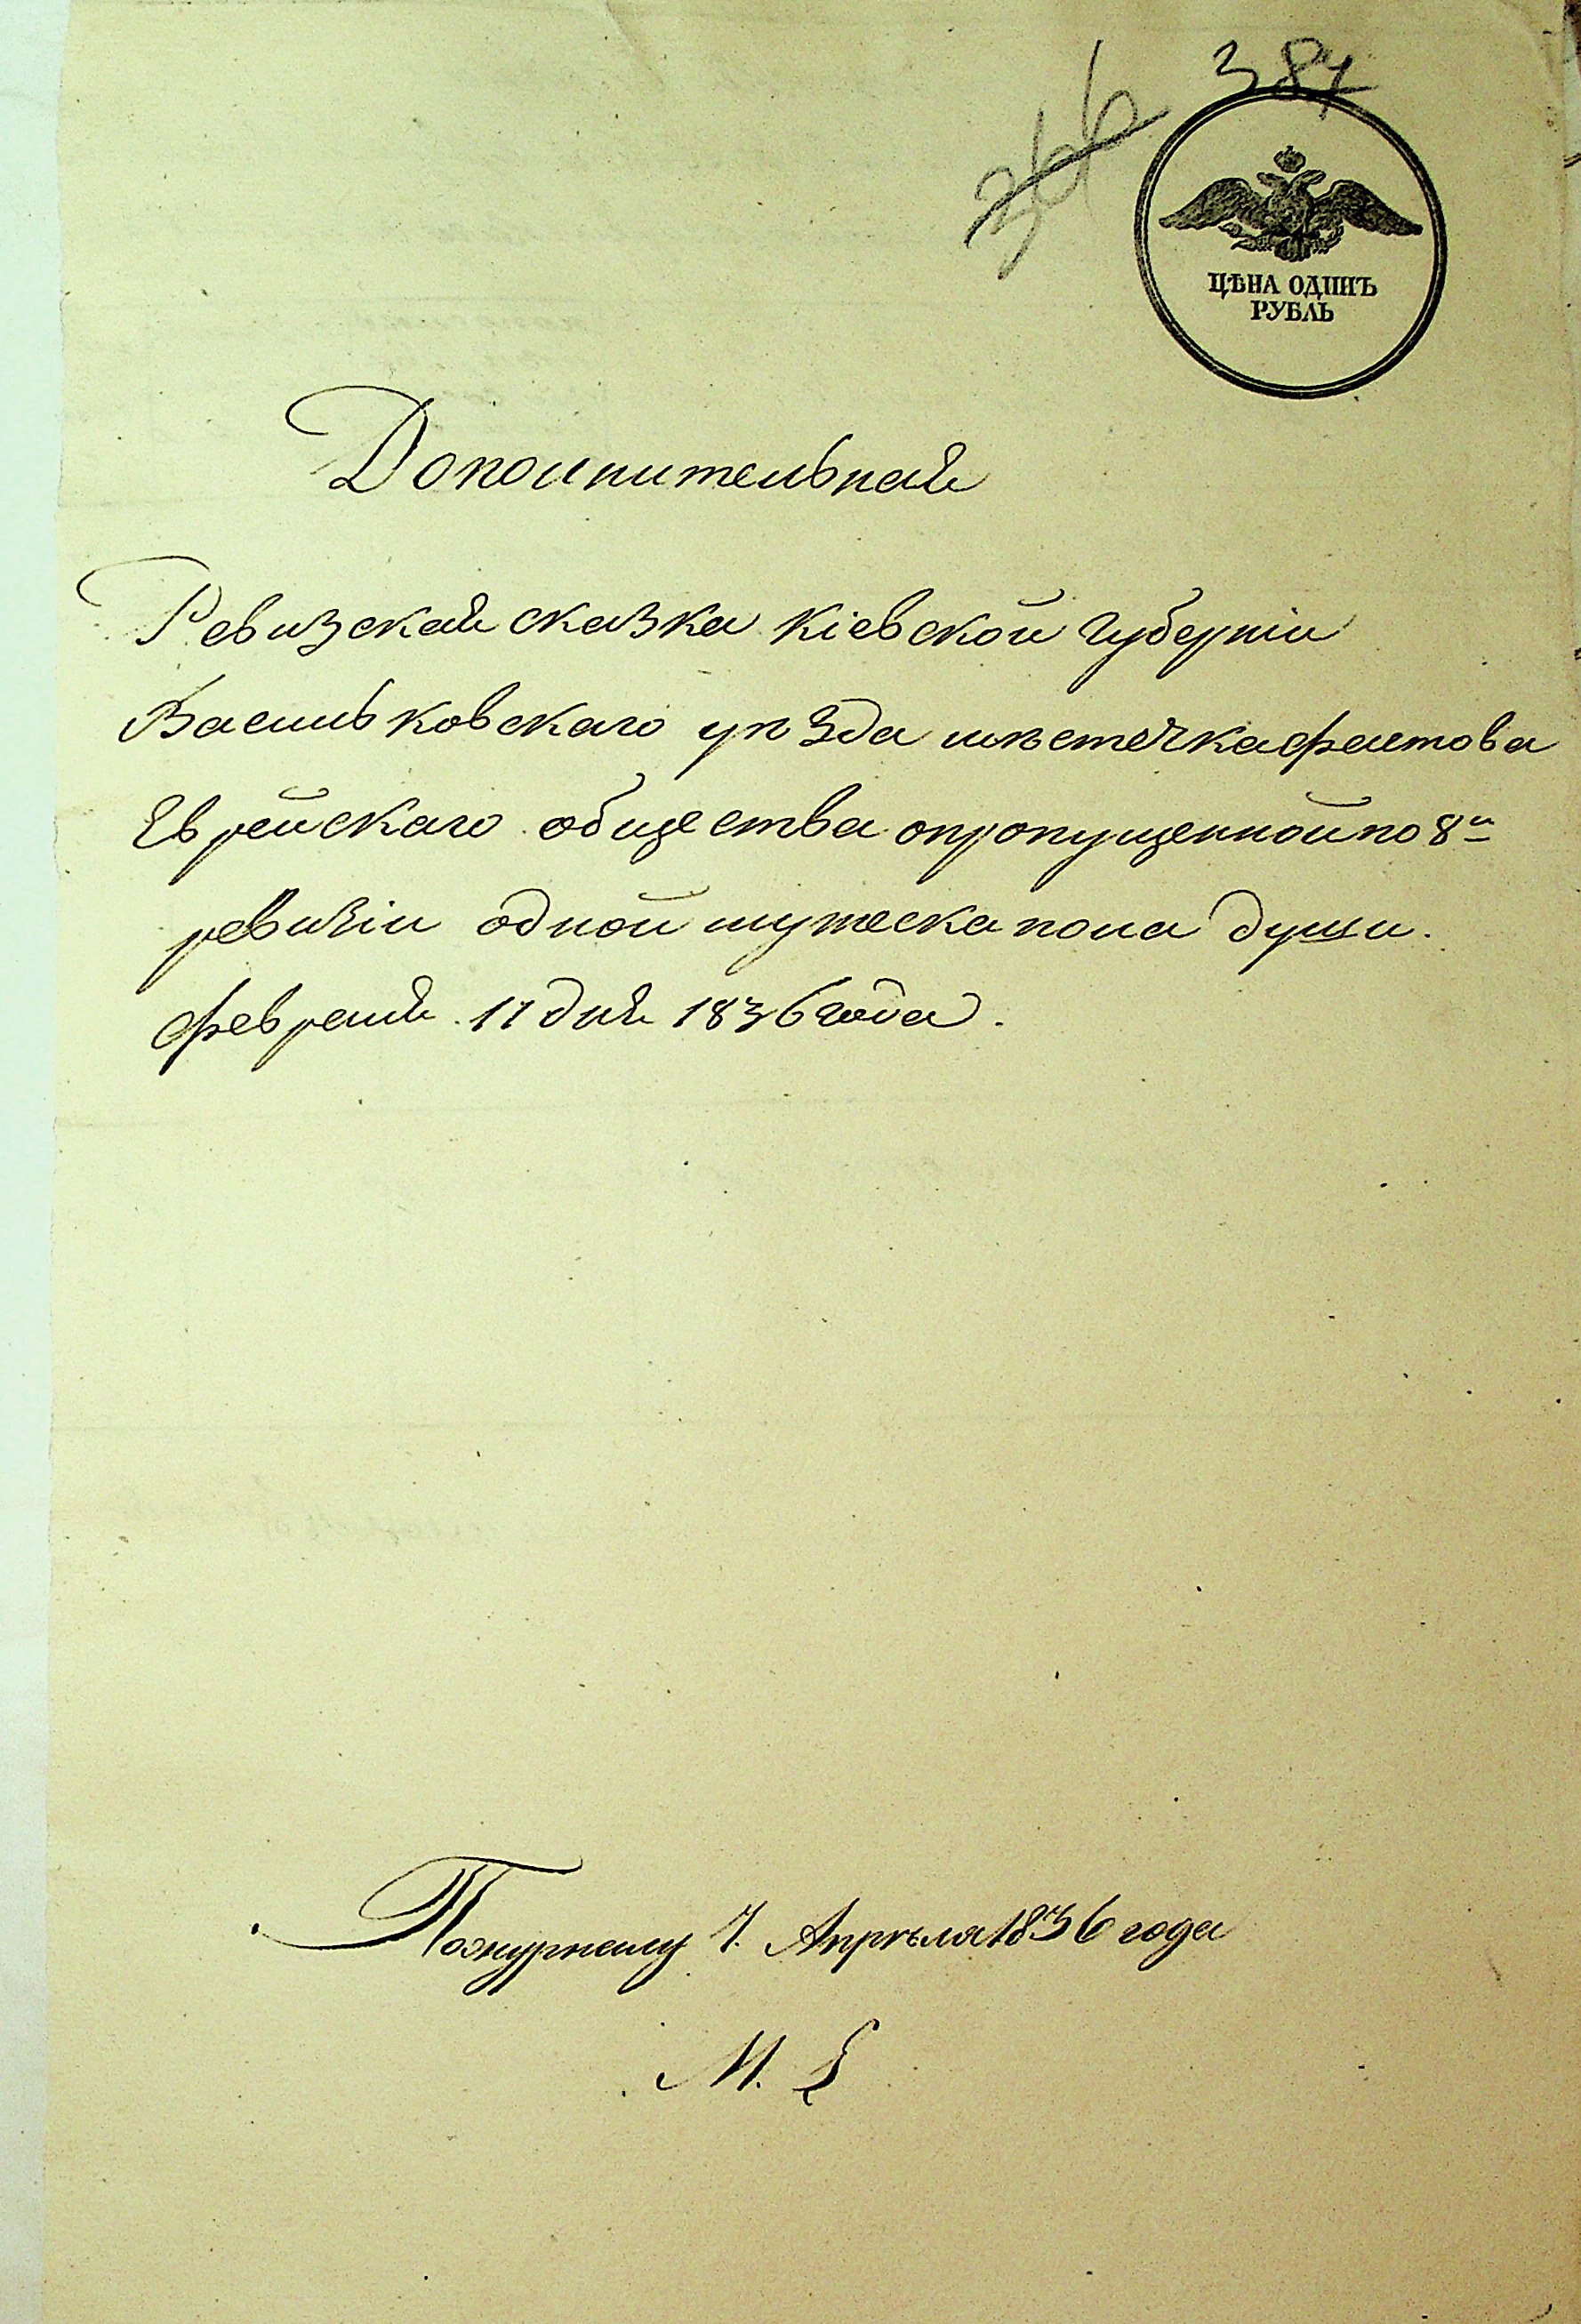 387
366
ЦѢНА ОДИНЪ
РУБЛЬ
Дополнительная
Ревизская сказка Кіевской Губерніи
Васильковскаго уѣзда мѣстечка Фастова
Еврейскаго общества опропущенной по 8й
ревизіи одной мужеска пола души.
Февраля 11 дня 1836 года.
По журналу 7. Апрѣля 1836 года